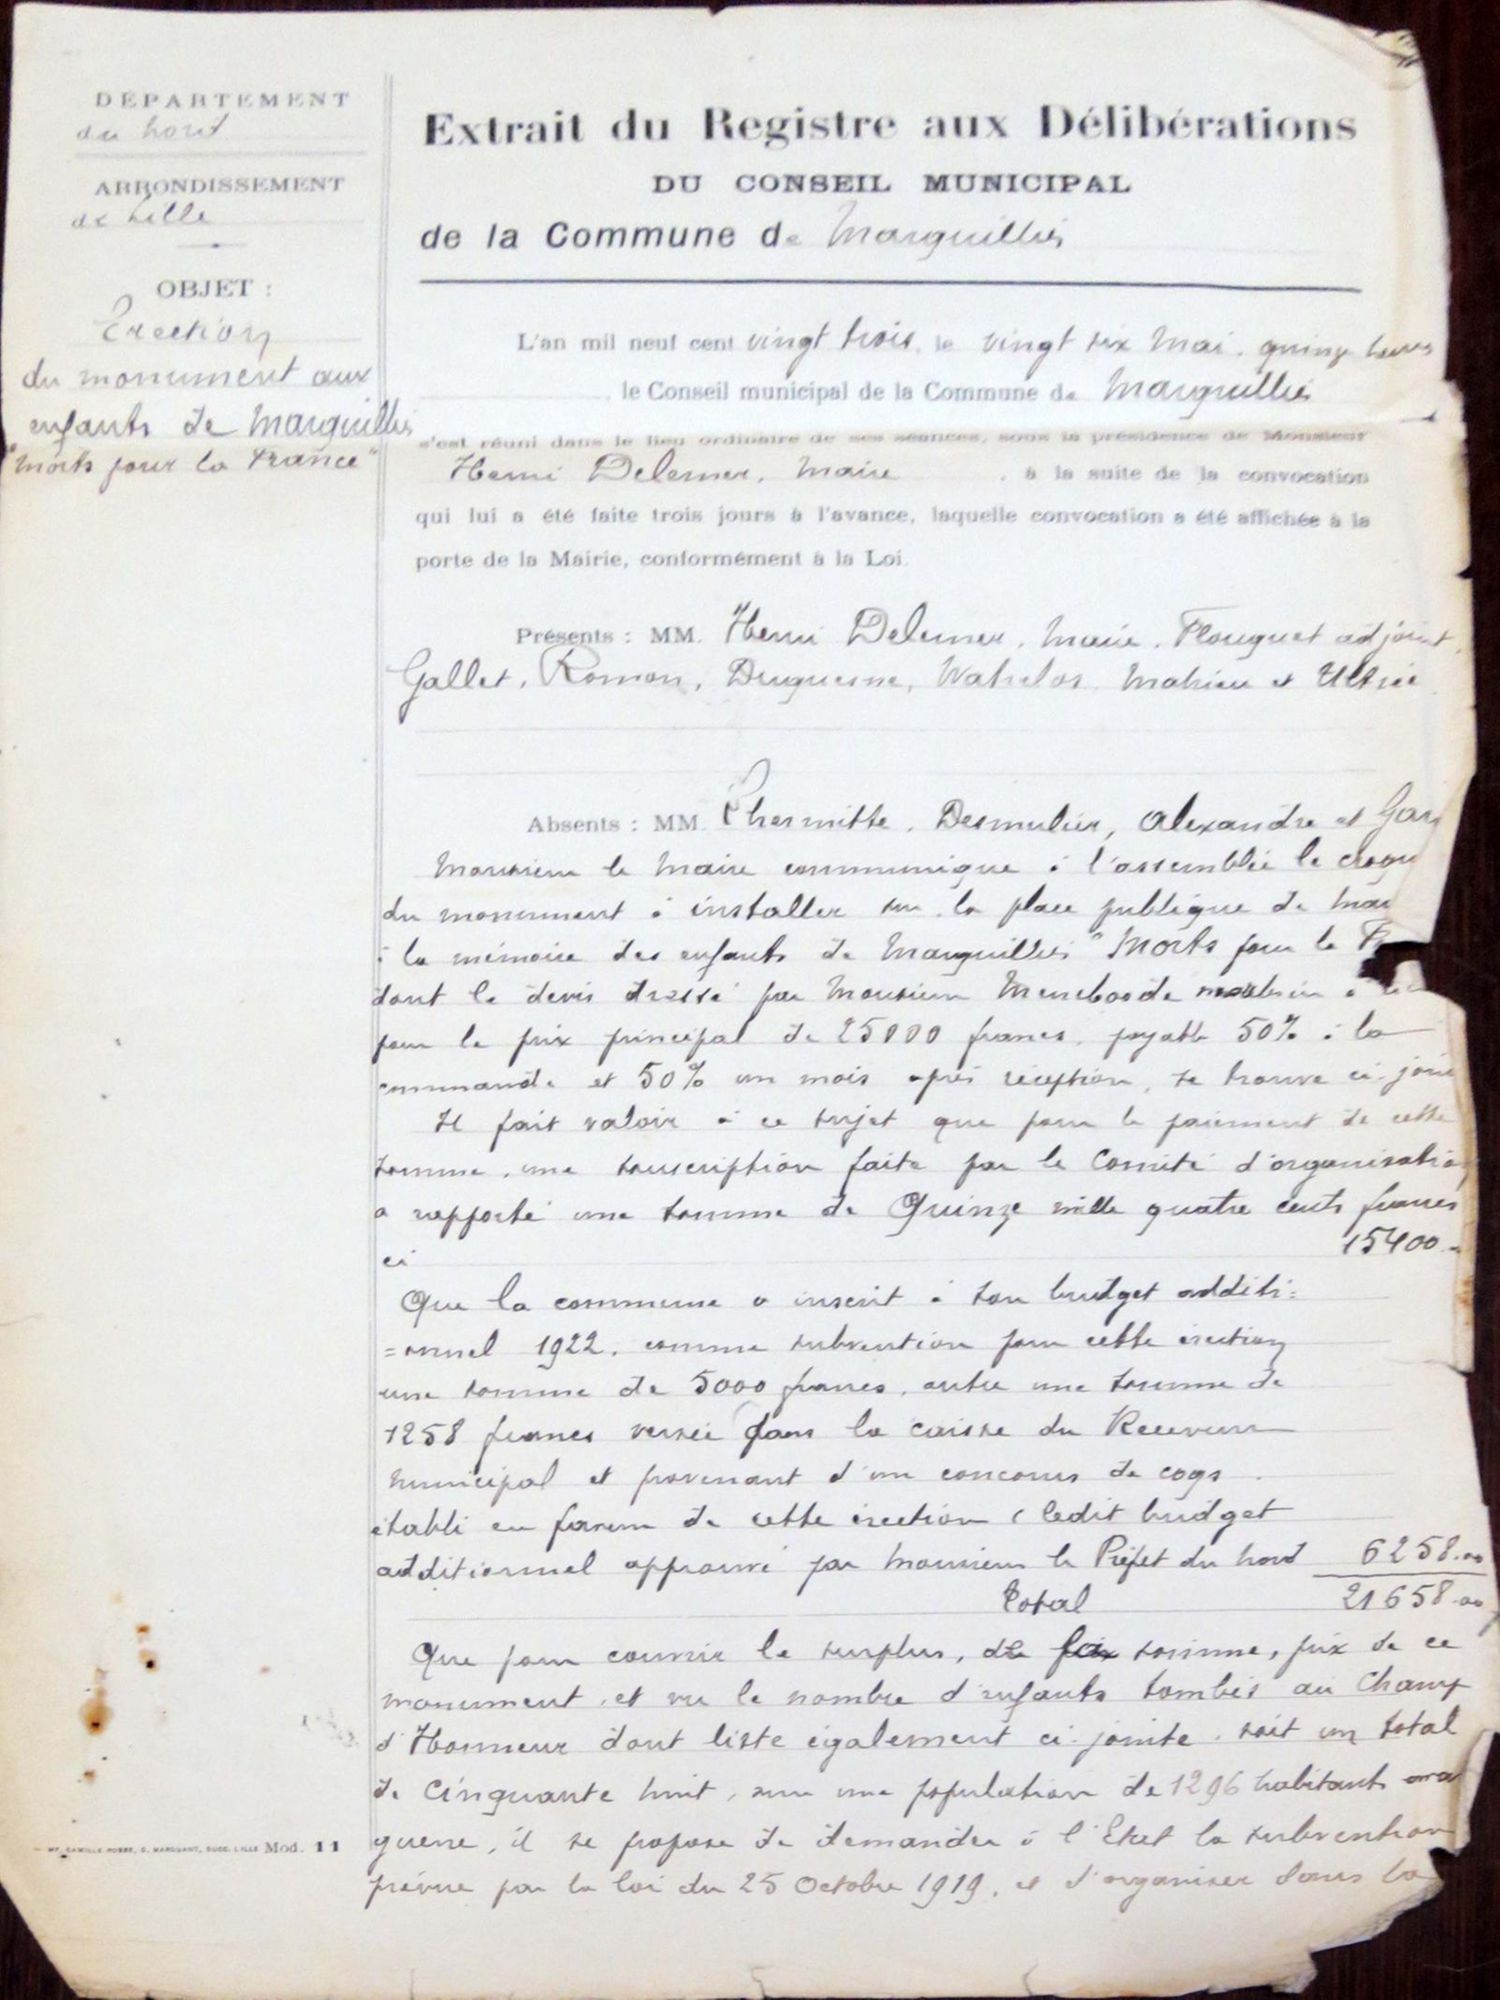 DÉPARTEMENT
du Nord
ARRONDISSEMENT
de Lille
OBJET :
Erection
du monument aux
enfants de Marquillies
"Morts pour la France"
Extrait du Registre aux Délibérations
DU CONSEIL MUNICIPAL
de la Commune de Marquillies
L'an mil neuf cent vingt trois, le vingt six Mai, quinze heures
, le Conseil municipal de la Commune de Marquillies
s'est réuni dans le lieu ordinaire de ses séances, sous la présidence de Monsieur
Henri Delemer, Maire , à la suite de la convocation
qui lui a été faite trois jours à l'avance, laquelle convocation a été affichée à la
porte de la Mairie, conformément à la Loi.
Présents : MM. Henri Delemer, Maire, Flouquet adjoint,
Gallet, Romon, Duquesne, Watrelos, Mahieu et
Absents : MM. Lhermitte, Desmulier, Alexandre et
Monsieur le Maire communique à l'assemblée le croqu
du monument à installer sur la place publique de Mar
à la mémoire des enfants de Marquillies "Morts pour la Fr
dont le devis dressé par Monsieur à
pour le prix principal de 25000 francs, payable 50% à la
commande et 50% un mois après réception, se trouve ci-joint
Il fait valoir à ce sujet que pour le paiement de cette
somme, une souscription faite par le Comité d'organisation
a rapporté une somme de Quinze mille quatre cents francs
ci 15400 -
Que la commune a inscrit à son budget additi=
=onnel 1922, comme subvention pour cette érection
une somme de 5000 francs, outre une somme de
1258 francs versée dans la caisse du Receveur
Municipal et provenant d'un concours de coqs
établi en faveur de cette érection (ledit budget
additionnel approuvé par Monsieur le Préfet du Nord 6258.00
Total 21658.00
Que pour couvrir le surplus, de somme, prix de ce
monument, et vu le nombre d'enfants tombés au Champ
d'Honneur dont liste également ci-jointe, soit un total
de Cinquante huit, sur une population de 1296 habitants
guerre, il se propose de demander à l'Etat la subvention
prévue par la loi du 25 Octobre 1919, et d'organiser dans la
IMP. CAMILLE ROBBE, C. MARQUANT, SUCC. LILLE Mod. 11